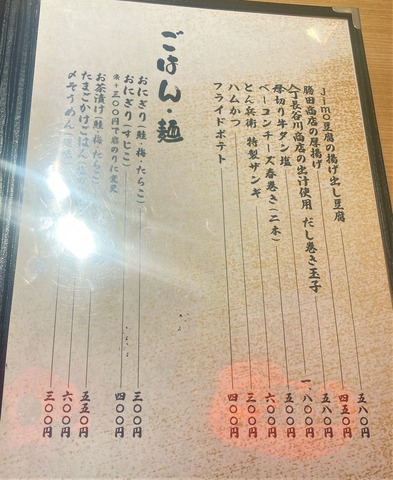 Jimo豆腐の揚げ出し豆腐 五八〇円
勝田商店の厚揚げ 四五〇円
長谷川商店の出汁使用 だし巻き玉子 五八〇円
厚切り牛タン塩 一、八〇〇円
ベーコンチーズ春巻き(二本) 五〇〇円
とん兵衛 特製ザンギ 六〇〇円
ハムかつ 三〇〇円
フライドポテト 四〇〇円
ごはん・麺
おにぎり(鮭・梅・たらこ) 三〇〇円
おにぎり(すじこ) 四〇〇円
※+三〇〇円で岩のりに変更
お茶漬け(鮭・梅・たらこ) 五五〇円
たまごかけごはん 六〇〇円
〆そうめん 三〇〇円